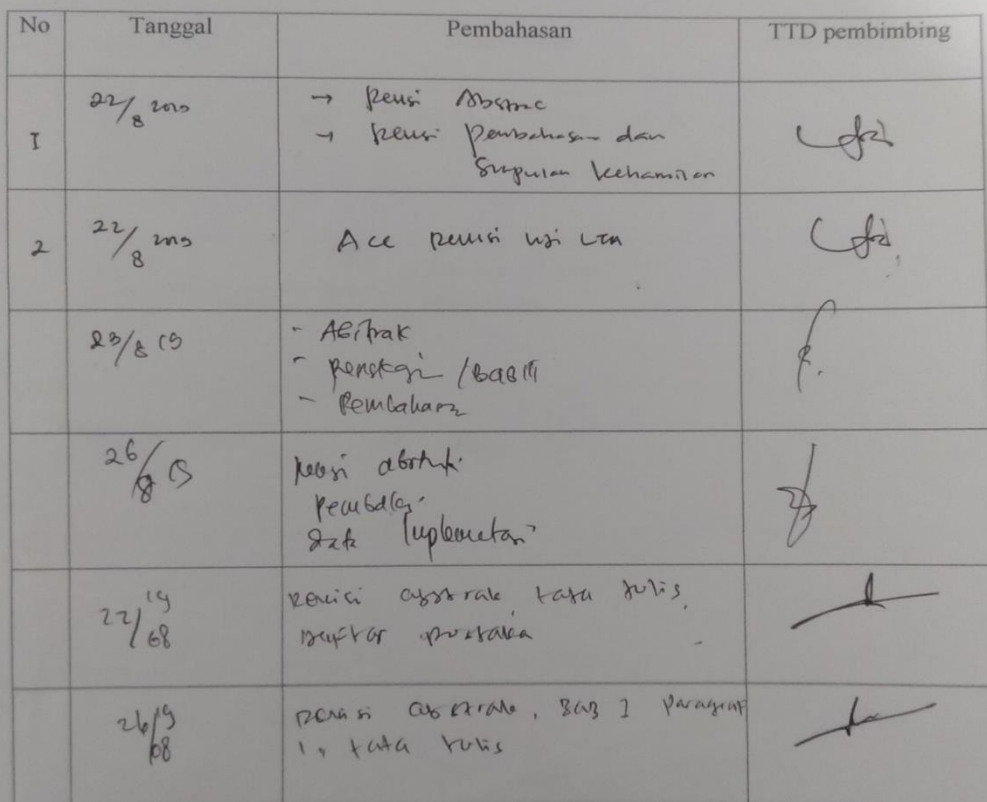 No Tanggal Pembahasan TTD pembimbing
1 22/8 2019 → Revisi Abstrac
→ Revisi pembahasan dan
Simpulan kehamilan
2 22/8 2019 Acc Revisi uji LTA
23/8 19 - Abstrak
- /BAB III
- Pembahasan
26/8 19 Revisi abstrak
data Implementasi
22/08 19 Revisi abstrak, tata tulis,
Daftar pustaka
26/08 19 Revisi abstrak, BAB I paragraf
1, tata tulis